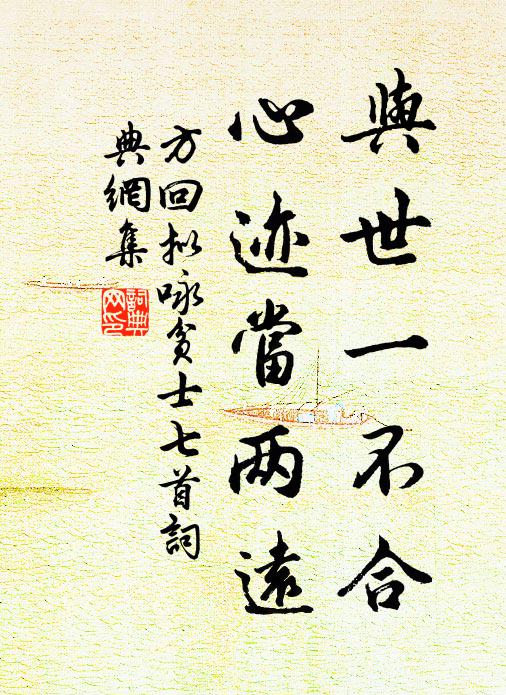 與世一不合
心迹當两遠
方回拟咏贫士七首詞
典網集
詞典
网印